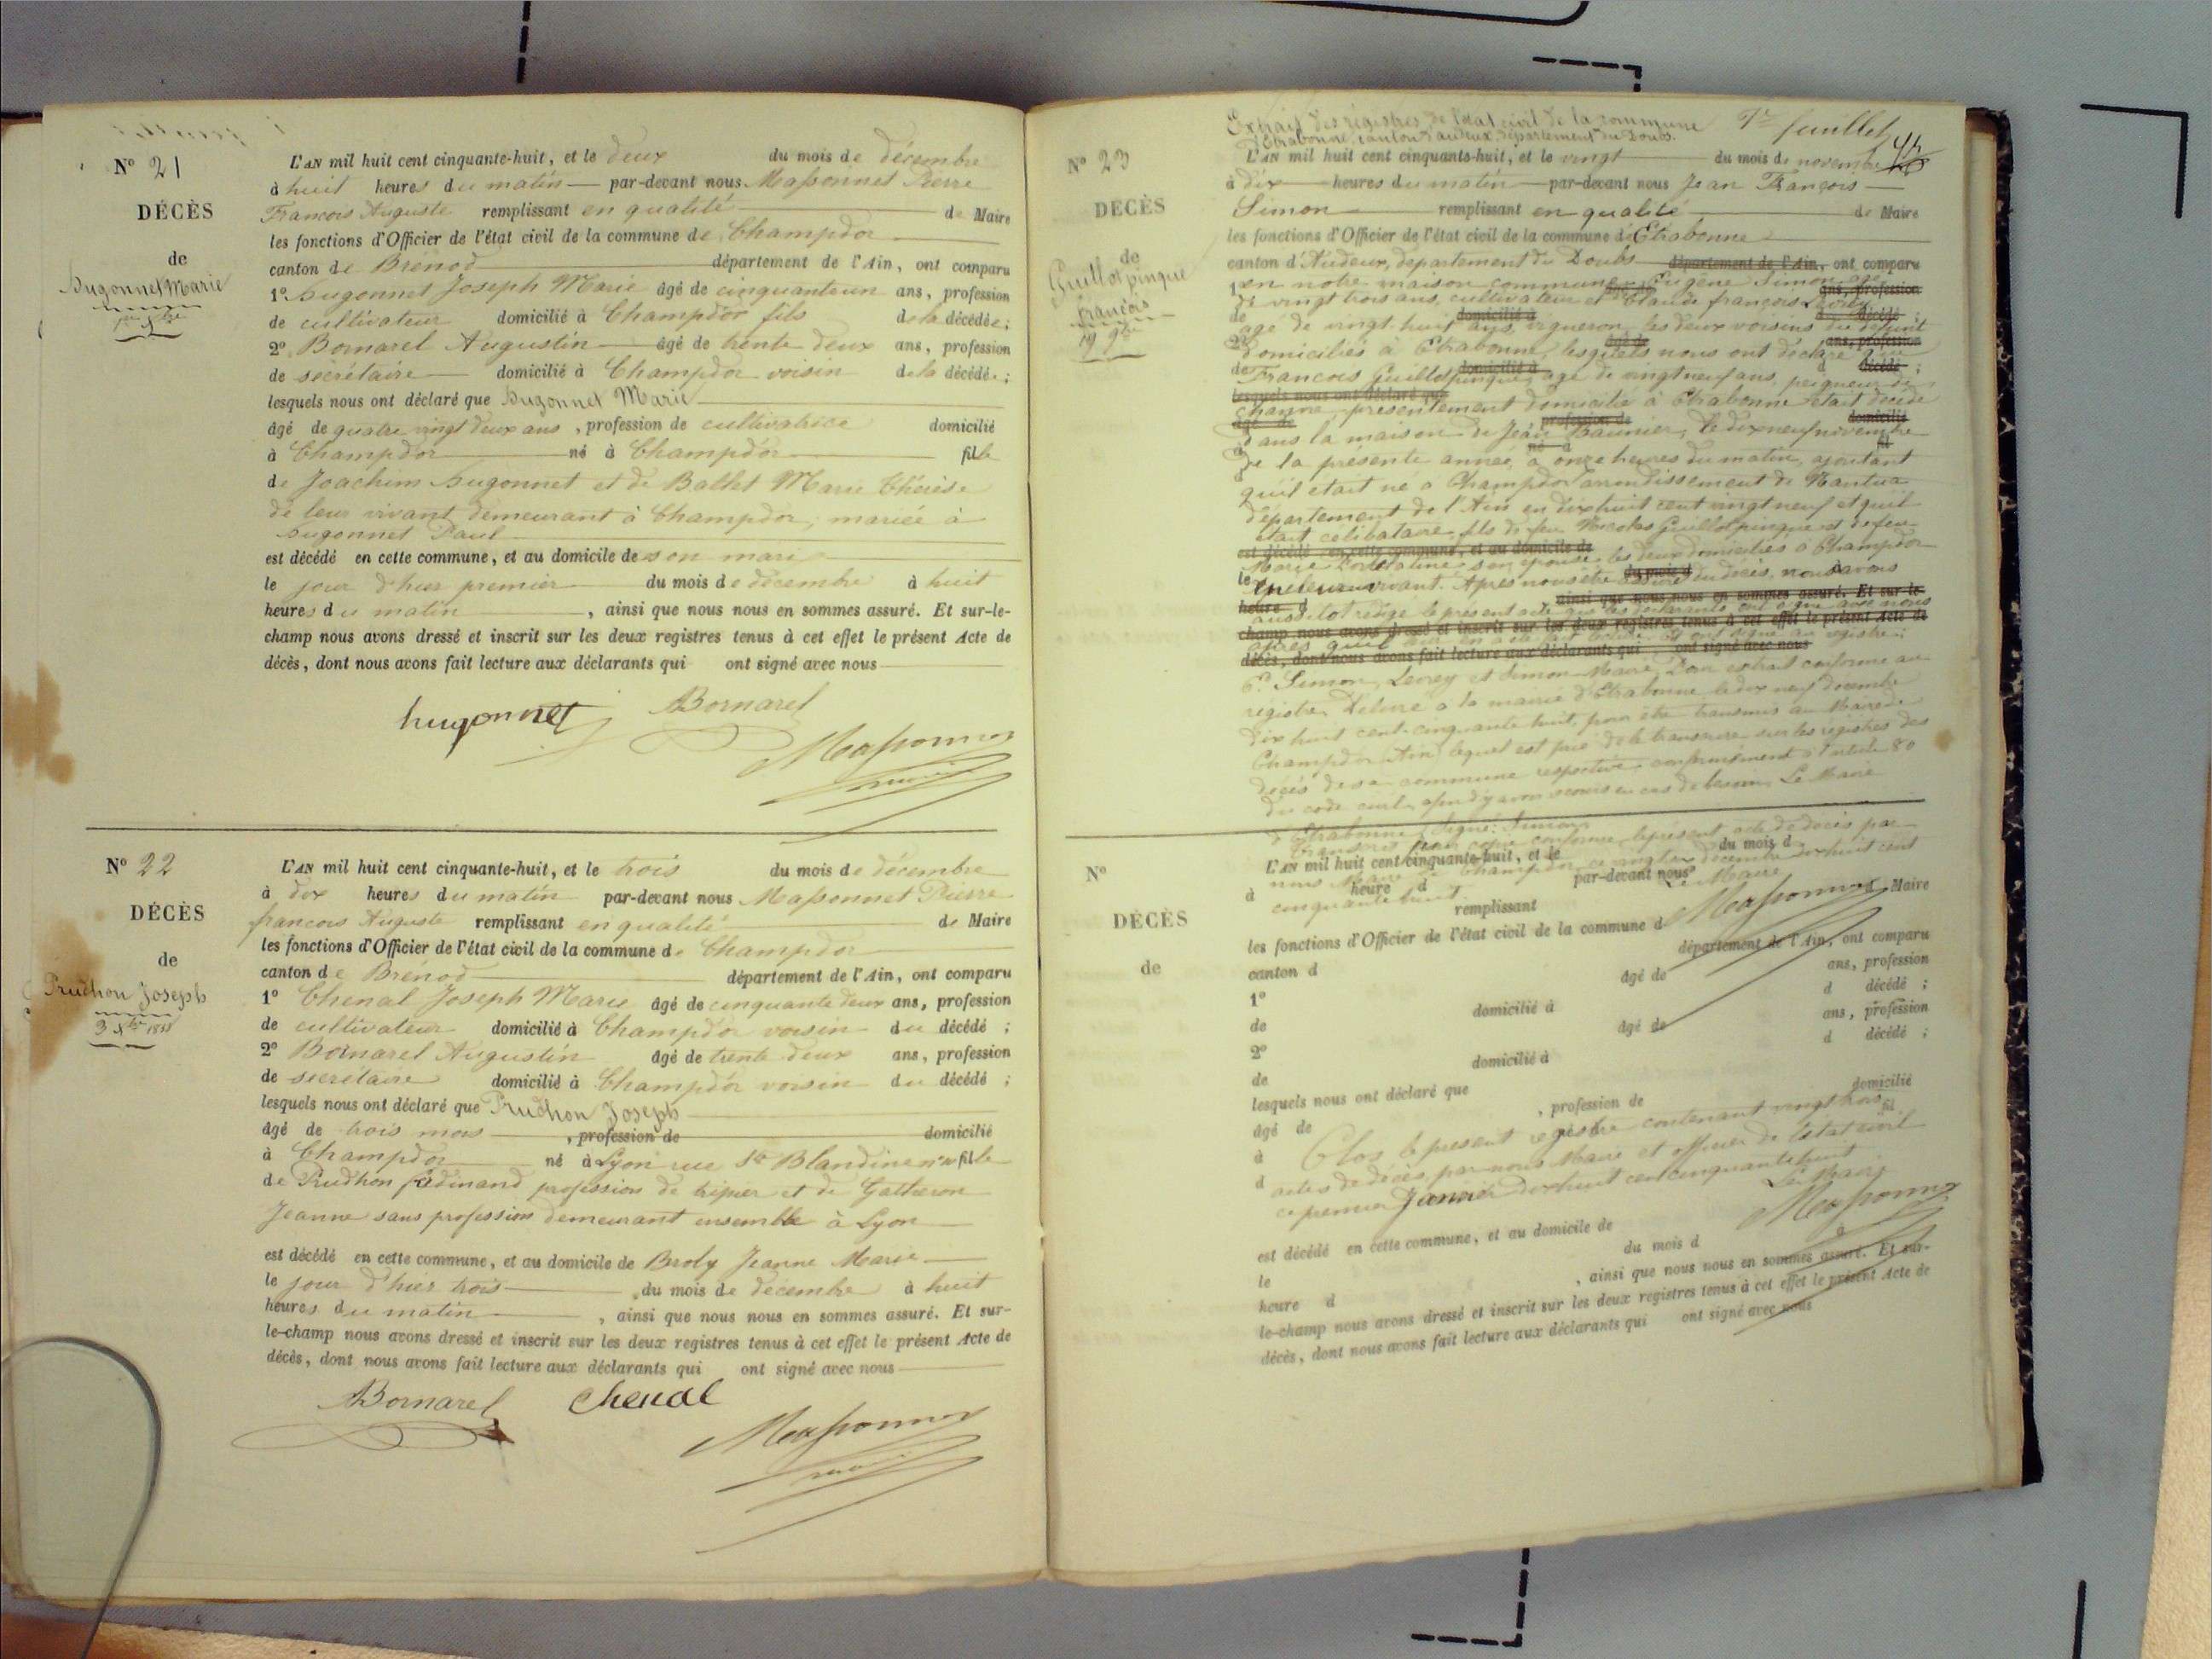 N° 21
DÉCÈS
de
Hugonnet Marie
L'AN mil huit cent cinquante-huit, et le deux du mois de décembre
à huit heures du matin par-devant nous Massonnet Pierre
François Auguste remplissant en qualité de Maire
les fonctions d'Officier de l'état civil de la commune de Champdor
canton de Brénod département de l'Ain, ont comparu
1° Hugonnet Joseph Marie âgé de cinquante un ans, profession
de cultivateur domicilié à Champdor fils de la décédée ;
2° Bornarel Augustin âgé de trente deux ans, profession
de secrétaire domicilié à Champdor voisin de la décédée ;
lesquels nous ont déclaré que Hugonnet Marie
âgé de quatre vingt deux ans, profession de cultivatrice domicilié
à Champdor né à Champdor fille
de Joachim Hugonnet et de Ballet Marie Thérèse
de leur vivant demeurant à Champdor, mariée à
Hugonnet Paul
est décédé en cette commune, et au domicile de son mari
le jour d'hier premier du mois de décembre à huit
heures du matin, ainsi que nous nous en sommes assuré. Et sur-le-
champ nous avons dressé et inscrit sur les deux registres tenus à cet effet le présent Acte de
décès, dont nous avons fait lecture aux déclarants qui ont signé avec nous
hugonnet Bornarel
Massonnet
N° 22
DÉCÈS
de
Prudhon Joseph
3 Xbre 1858
L'AN mil huit cent cinquante-huit, et le trois du mois de décembre
à dix heures du matin par-devant nous Massonnet Pierre
françois Auguste remplissant en qualité de Maire
les fonctions d'Officier de l'état civil de la commune de Champdor
canton de Brénod département de l'Ain, ont comparu
1° Chenal Joseph Marie âgé de cinquante deux ans, profession
de cultivateur domicilié à Champdor voisin du décédé ;
2° Bornarel Augustin âgé de trente deux ans, profession
de secrétaire domicilié à Champdor voisin du décédé ;
lesquels nous ont déclaré que Prudhon Joseph
âgé de trois mois, profession de domicilié
à Champdor né à Lyon rue Ste Blandine fils
de Prudhon ferdinand profession de tripier et de Gatheron
Jeanne sans profession demeurant ensemble à Lyon
est décédé en cette commune, et au domicile de Broly Jeanne Marie
le jour d'hier trois du mois de décembre à huit
heures du matin, ainsi que nous nous en sommes assuré. Et sur-
le-champ nous avons dressé et inscrit sur les deux registres tenus à cet effet le présent Acte de
décès, dont nous avons fait lecture aux déclarants qui ont signé avec nous
Bornarel Chenal
Massonnet
Extrait des registres de l'état civil de la commune
d'Etrabonne, canton d'audeux, département du Doubs.
feuillet
N° 23
DÉCÈS
de
Guillotpinque
françois
19 9bre
L'AN mil huit cent cinquante-huit, et le vingt du mois de novembre
à dix heures du matin par-devant nous Jean François
Simon remplissant en qualité de Maire
les fonctions d'Officier de l'état civil de la commune d'Etrabonne
canton d'Audeux, département du Doubs département de l'Ain, ont comparu
en notre maison commune Eugène Simon âgé
de vingt trois ans, cultivateur et Claude françois
âgé de vingt huit ans, vigneron, les deux voisins du défunt
domiciliés à Etrabonne, lesquels nous ont déclaré que
François Guillotpinque, âgé de vingt neuf ans, peigneur de
chanvre, présentement domicilié à Etrabonne était décédé
dans la maison de Jean, le dix neuf novembre
de la présente année, à onze heures du matin, ajoutant
qu'il était né à Champdor arrondissement de Nantua
département de l'Ain en dix huit cent vingt neuf et qu'il
était célibataire, fils de feu Nicolas Guillotpinque et de feu
Marie son épouse, les deux domiciliés à Champdor
de leur vivant. Après nous être assuré du décès, nous avons
aussitôt rédigé le présent acte que les déclarants ont signé avec nous
E. Simon, et Simon Maire. Pour extrait conforme au
registre. Délivré à la mairie d'Etrabonne, le dix neuf décembre
dix huit cent cinquante huit, pour être transmis au Maire de
Champdor (Ain) lequel est prié de le transcrire sur les registres des
décès de sa commune respective conformément à l'article 80
du code civil, afin d'y avoir recours en cas de besoin. Le Maire
d'Etrabonne, Signé : Simon
Transcrit pour copie conforme, le présent acte de décès par
nous Maire de Champdor, ce vingt décembre dix huit cent
cinquante huit.
Le Maire
Massonnet
N°
DÉCÈS
de
L'AN mil huit cent cinquante-huit, et le du mois d
à heure d par-devant nous
remplissant Maire
les fonctions d'Officier de l'état civil de la commune d
canton d département de l'Ain, ont comparu
1° âgé de ans, profession
de domicilié à d décédé ;
2° âgé de ans, profession
de domicilié à d décédé ;
lesquels nous ont déclaré que
âgé de, profession de domicilié
à né à fil
d
Clos le présent registre contenant vingt trois
actes de décès par nous Maire et officier de l'état civil
ce premier Janvier dix huit cent cinquante huit
Le Maire
Massonnet
est décédé en cette commune, et au domicile de
le du mois d à
heure d, ainsi que nous nous en sommes assuré. Et sur-
le-champ nous avons dressé et inscrit sur les deux registres tenus à cet effet le présent Acte de
décès, dont nous avons fait lecture aux déclarants qui ont signé avec nous